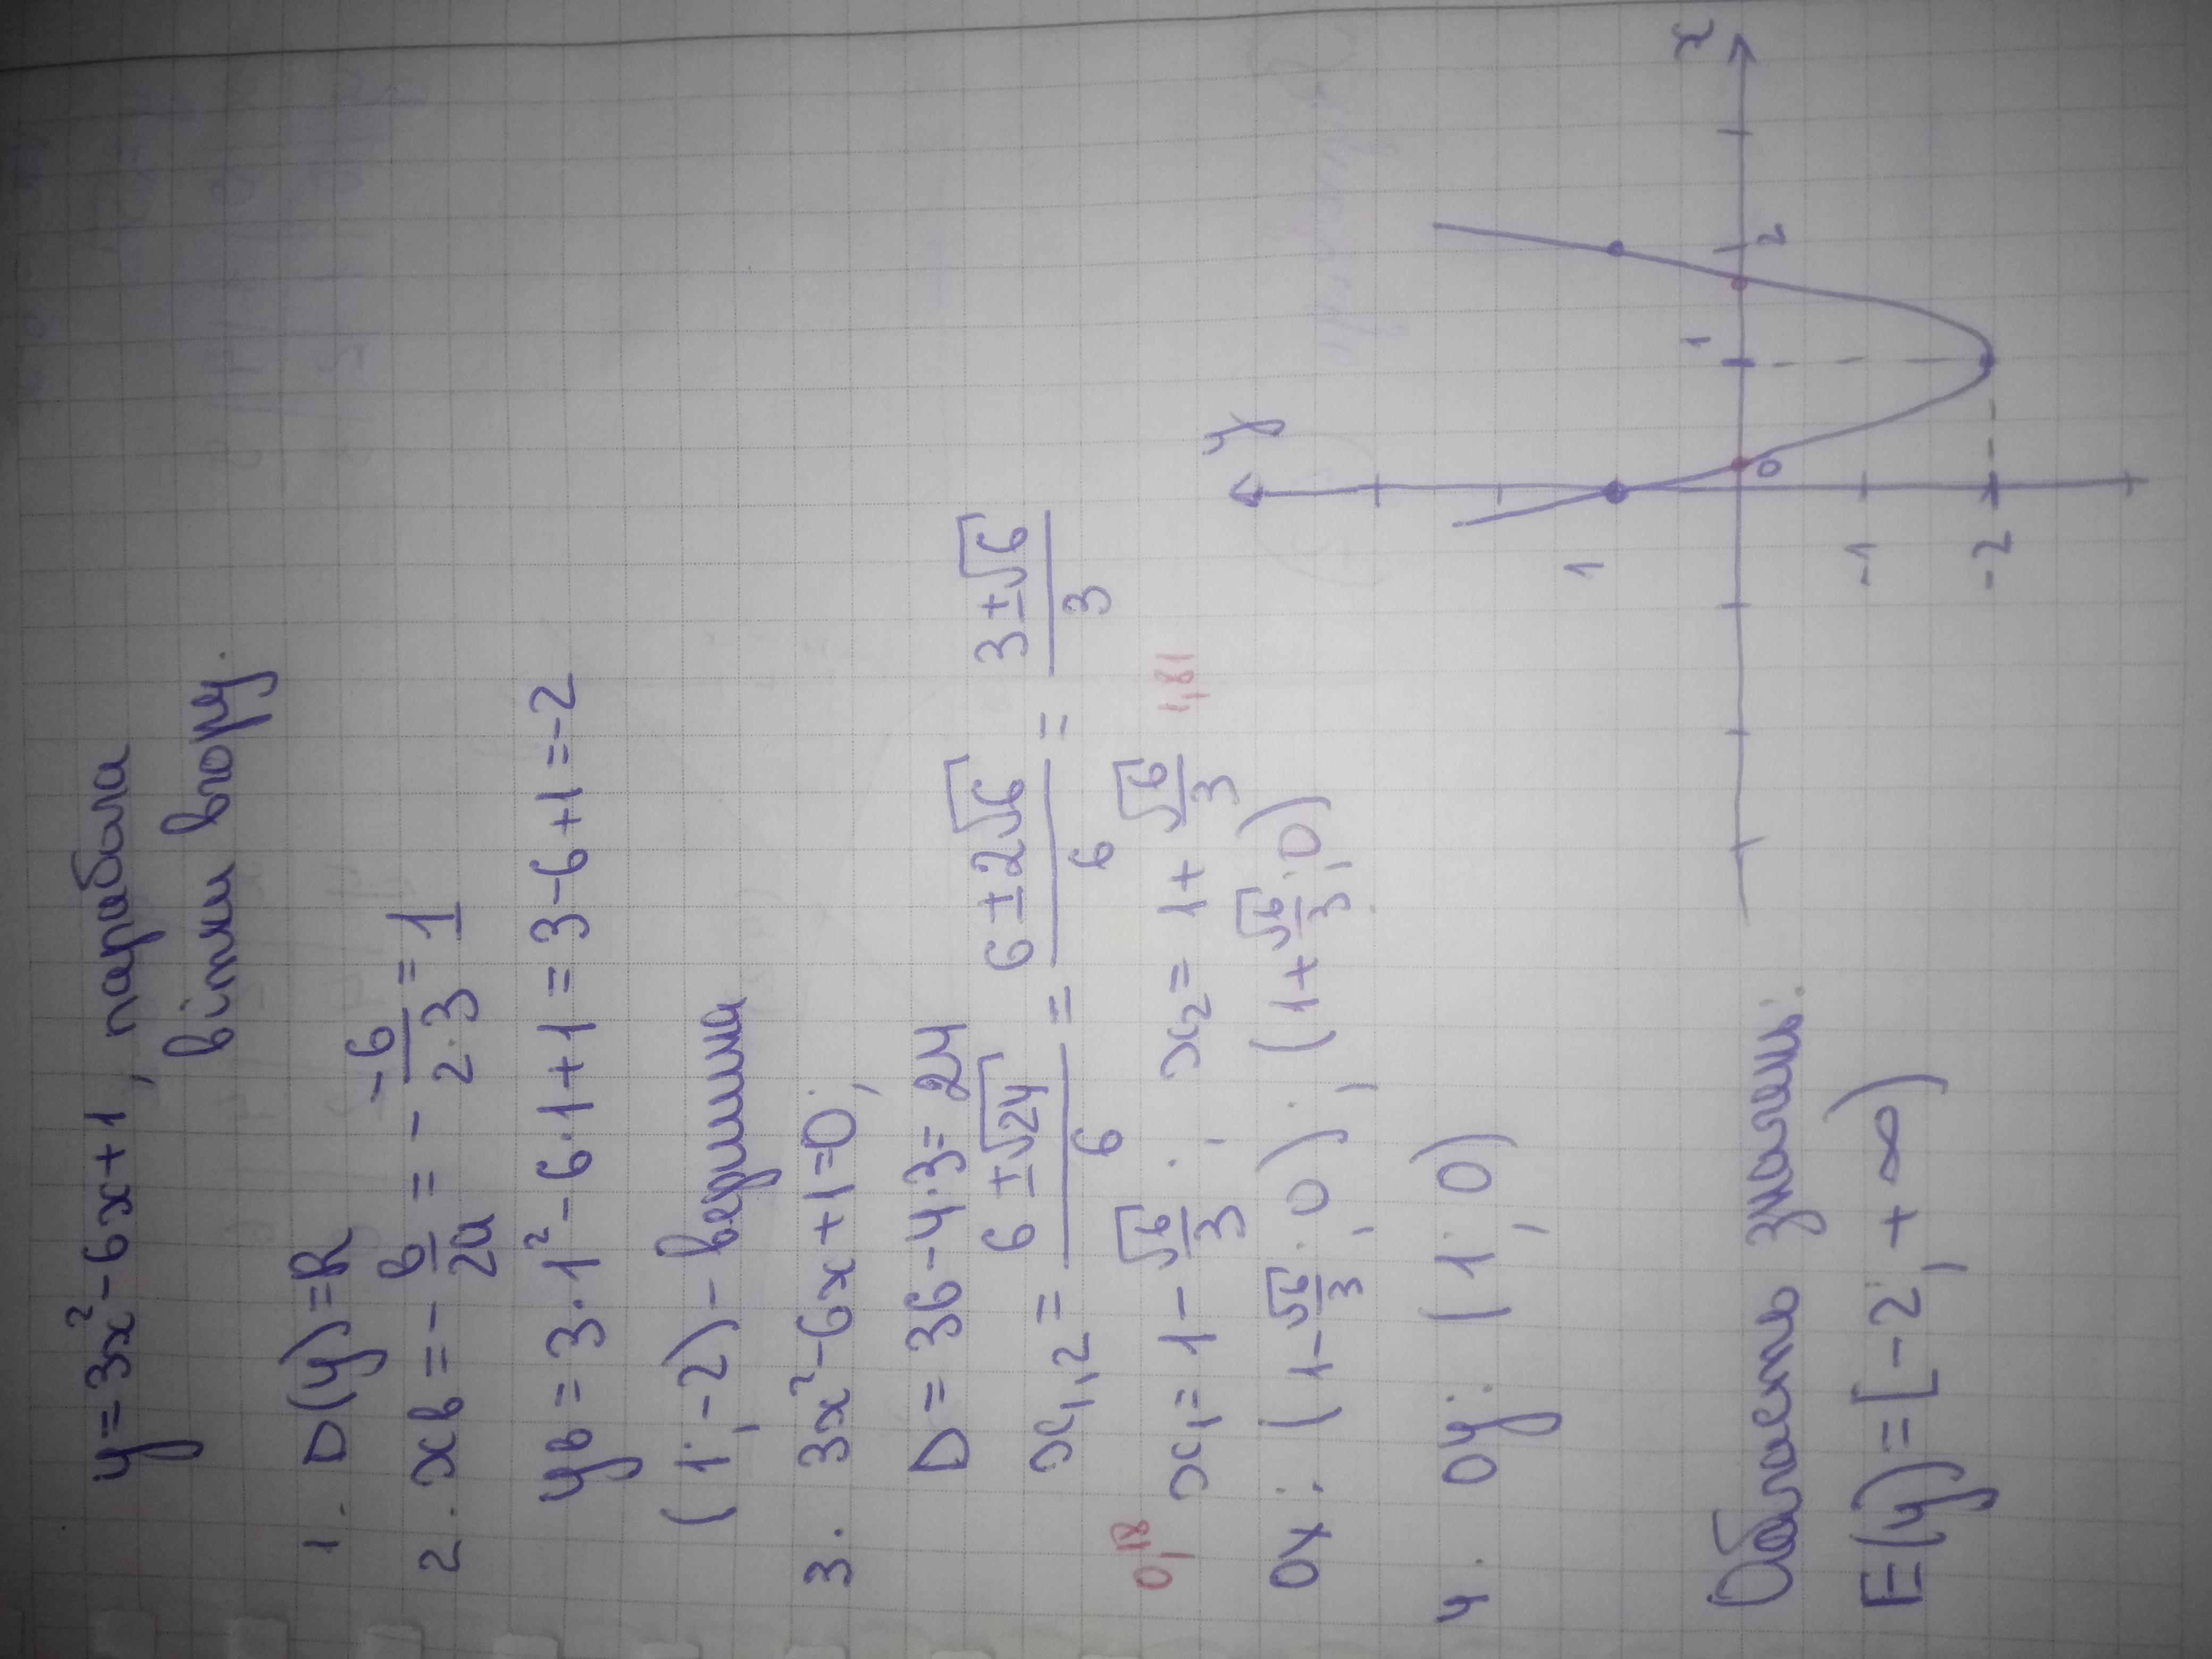 y=3x²-6x+1, парабола
вітки вгору.
1. D(y)=R
2. xв = - в/2a = - -6/2·3 = 1
yв = 3·1²-6·1+1 = 3-6+1=-2
(1;-2)- вершина
3. 3x²-6x+1=0;
D = 36-4·3= 24
x₁,₂ = 6±√24/6 = 6±2√6/6 = 3±√6/3
0,18 x₁= 1-√6/3; x₂= 1+√6/3 1,81
OX: (1-√6/3; 0); (1+√6/3; 0)
4. Oy: (1; 0)
Область значень:
E(y)=[-2; +∞)
y
x
1
0
1
2
-1
-2